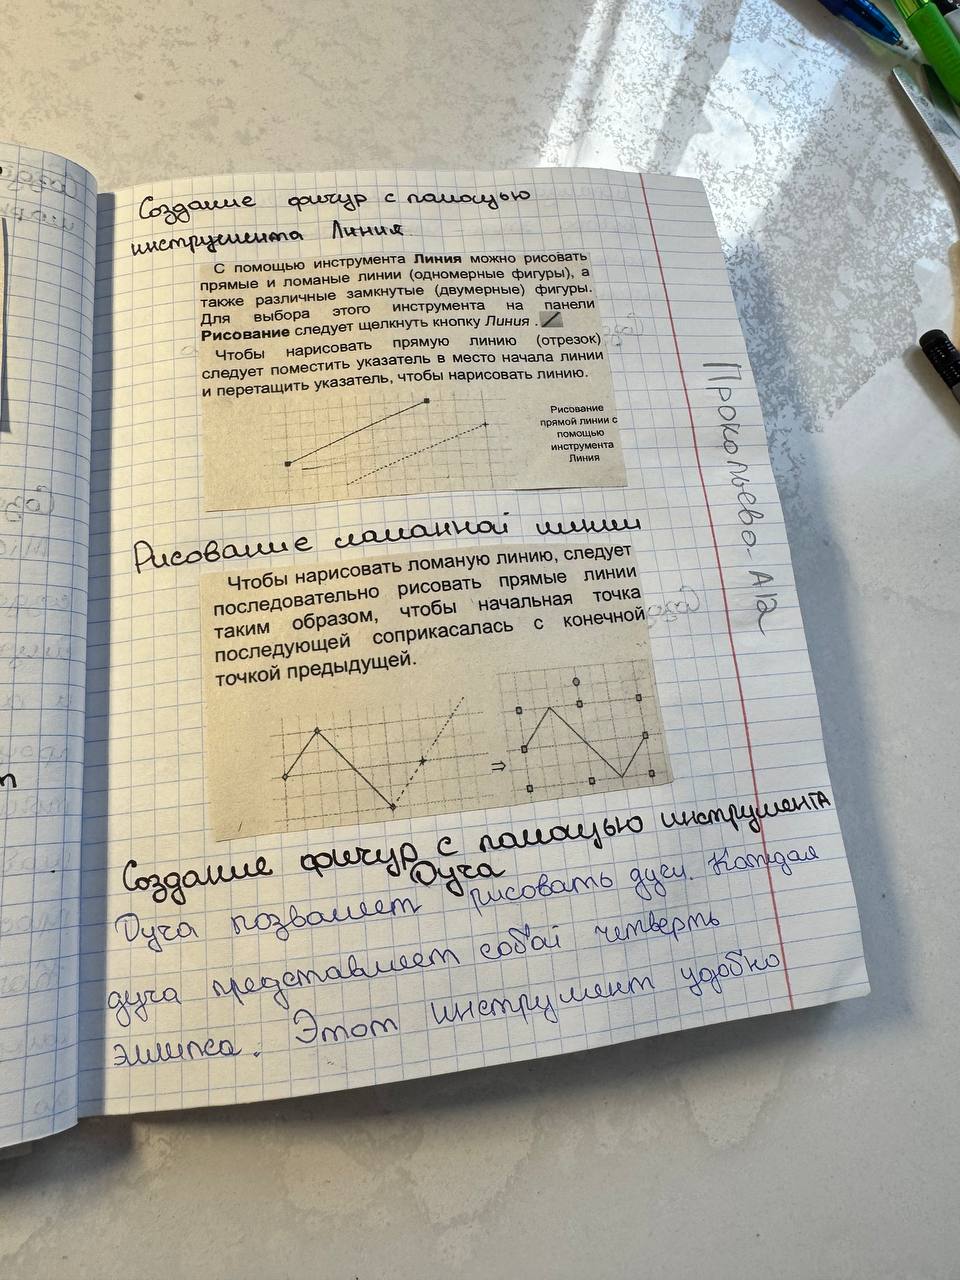 Создание фигур с помощью
инструмента Линия
С помощью инструмента Линия можно рисовать
прямые и ломаные линии (одномерные фигуры), а
также различные замкнутые (двумерные) фигуры.
Для выбора этого инструмента на панели
Рисование следует щелкнуть кнопку Линия .
Чтобы нарисовать прямую линию (отрезок)
следует поместить указатель в место начала линии
и перетащить указатель, чтобы нарисовать линию.
Рисование
прямой линии с
помощью
инструмента
Линия
Рисование ломанной линии
Чтобы нарисовать ломаную линию, следует
последовательно рисовать прямые линии
таким образом, чтобы начальная точка
последующей соприкасалась с конечной
точкой предыдущей.
⇒
Создание фигур с помощью инструмента
Дуга
Дуга позваляет рисовать дуги. Каждая
дуга представляет собой четверть
эллипса. Этот инструмент удобно